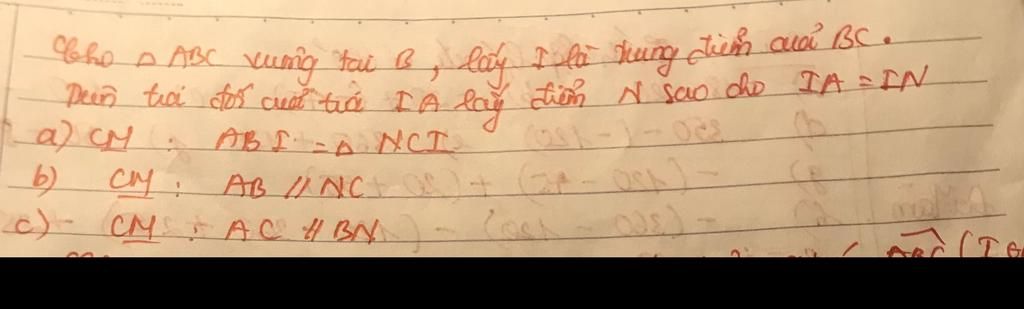 Cho △ ABC vuông tại B, lấy I là trung điểm của BC.
Trên tia đối của tia IA lấy điểm N sao cho IA = IN
a) CM : ABI = △ NCI
b) CM : AB // NC
c) CM : AC // BN